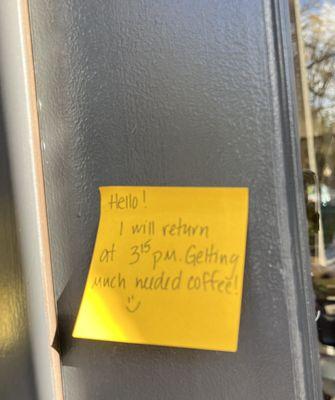 Hello!
I will return
at 3¹⁵ pm. Getting
much needed coffee!